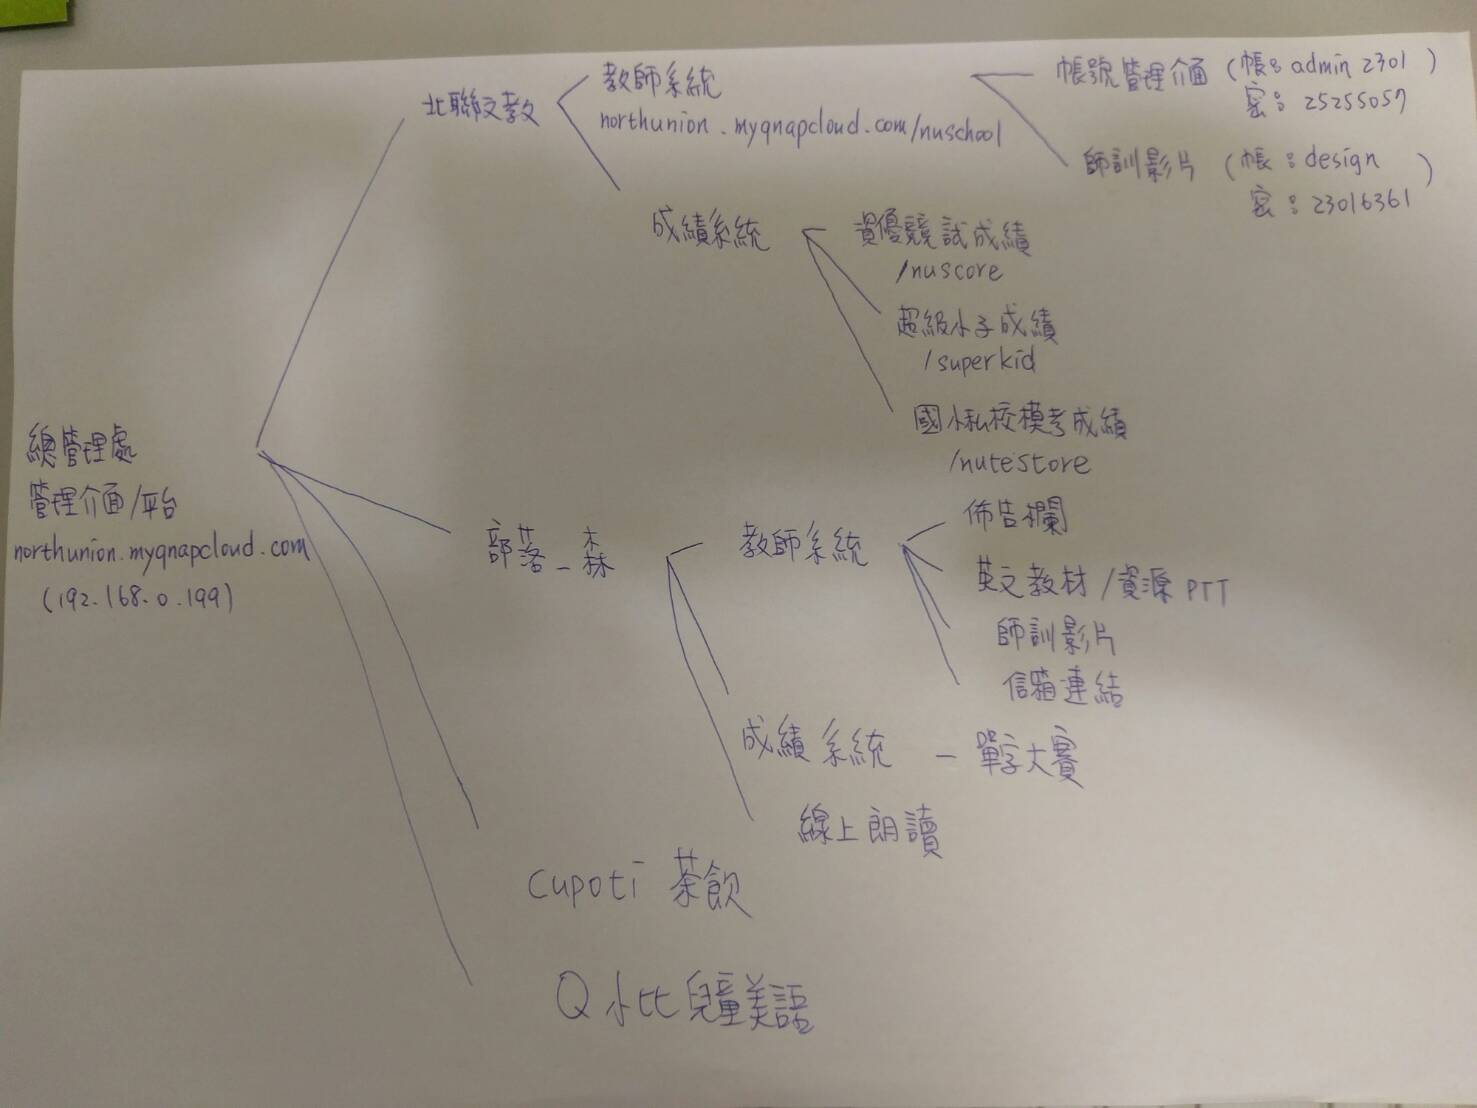 總管理處
管理介面/平台
northunion.myqnapcloud.com
(192.168.0.199)
北聯文教
教師系統
northunion.myqnapcloud.com/nuschool
帳號管理介面 (帳:admin 2301)
密:25255057
師訓影片 (帳:design)
密:23016361
成績系統
資優競試成績
/nuscore
超級小子成績
/superkid
國小私校模考成績
/nutestore
部落_森
教師系統
佈告欄
英文教材/資源 PTT
師訓影片
信箱連結
成績系統 - 單字大賽
線上朗讀
Cupoti 茶飲
Q小比兒童美語